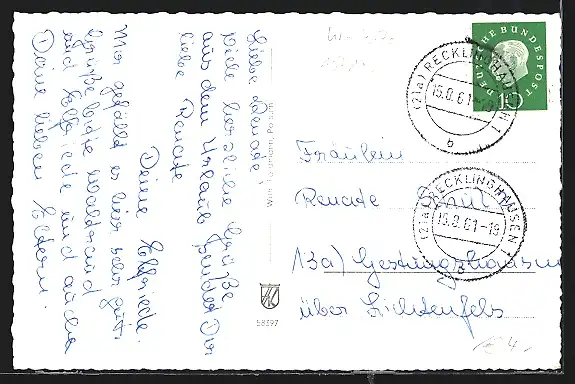 Liebe Renate,
viele herzliche Grüße
aus dem Urlaub sendet Dir
liebe Renate
Deine Helgriede.
Mir gefällt es hier sehr gut.
Grüße bitte Waldraud
und Helgriede und auch
Deine lieben Eltern.
Fräulein
Renate
13a) Gestungshausen
über Lichtenfels
DEUTSCHE BUNDESPOST
10
(21a) RECKLINGHAUSEN 1
15.8.61
b
(21a) RECKLINGHAUSEN 1
15.8.61-19
58397